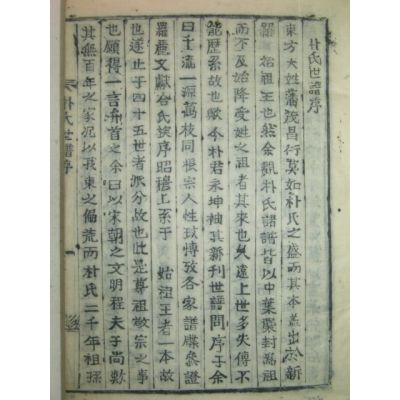 朴氏世譜序
東方大姓蕃茂昌衍莫如朴氏之盛而其本盖出於新
羅始祖王也然余觀朴氏諸譜皆以中葉蘗封爲祖
而不及始降受姓之祖者其來也久遠上世多失傳不
能歷系故也歟今朴君永坤袖其新刊世譜問序于余
曰千流一源萬枝同根宗人性玹博攷各家譜牒參證
羅麗文獻合氏族序昭穆上系于 始祖王者一本故
也遂止于四十五世者派分故也此是尊祖敬宗之事
也願得一言弁首之余曰以宋朝之文明程夫子尚歎
其無百年之家况以我東之偏荒而朴氏二千年祖孫
朴氏世譜序
一